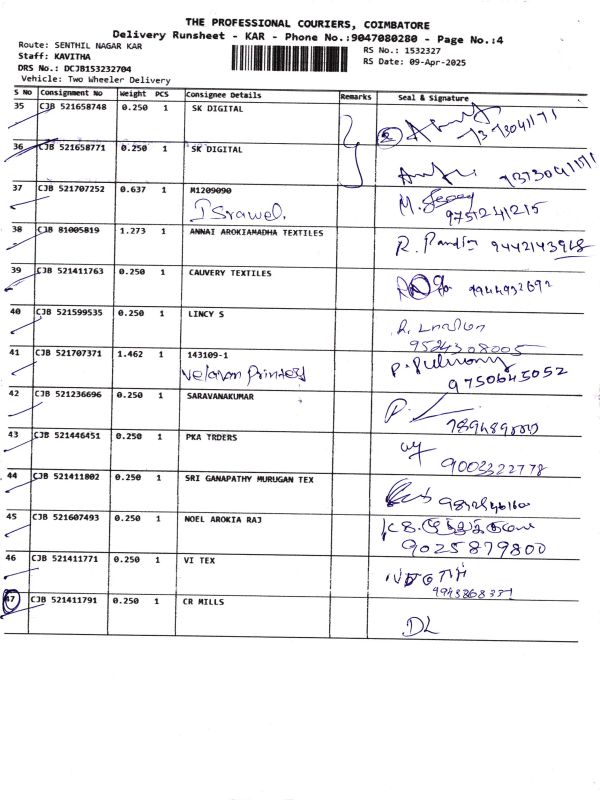 THE PROFESSIONAL COURIERS, COIMBATORE
Delivery Runsheet - KAR - Phone No.:9047080280 - Page No.:4
Route: SENTHIL NAGAR KAR
RS No.: 1532327
Staff: KAVITHA
RS Date: 09-Apr-2025
DRS No.: DCJB153232704
Vehicle: Two Wheeler Delivery
S No Consignment No Weight PCS Consignee Details Remarks Seal & Signature
35 CJB 521658748 0.250 1 SK DIGITAL
36 CJB 521658771 0.250 1 SK DIGITAL
7373041171
37 CJB 521707252 0.637 1 M1209090
Israwel. 9751241215
38 CJB 81005819 1.273 1 ANNAI AROKIAMADHA TEXTILES
R. Pandi 9442143968
39 CJB 521411763 0.250 1 CAUVERY TEXTILES
9944932692
40 CJB 521599535 0.250 1 LINCY S
9524308005
41 CJB 521707371 1.462 1 143109-1
Velavan Printers 9750645052
42 CJB 521236696 0.250 1 SARAVANAKUMAR
43 CJB 521446451 0.250 1 PKA TRDERS
9003322778
44 CJB 521411802 0.250 1 SRI GANAPATHY MURUGAN TEX
45 CJB 521607493 0.250 1 NOEL AROKIA RAJ
9025879800
46 CJB 521411771 0.250 1 VI TEX
9943868331
47 CJB 521411791 0.250 1 CR MILLS
DL